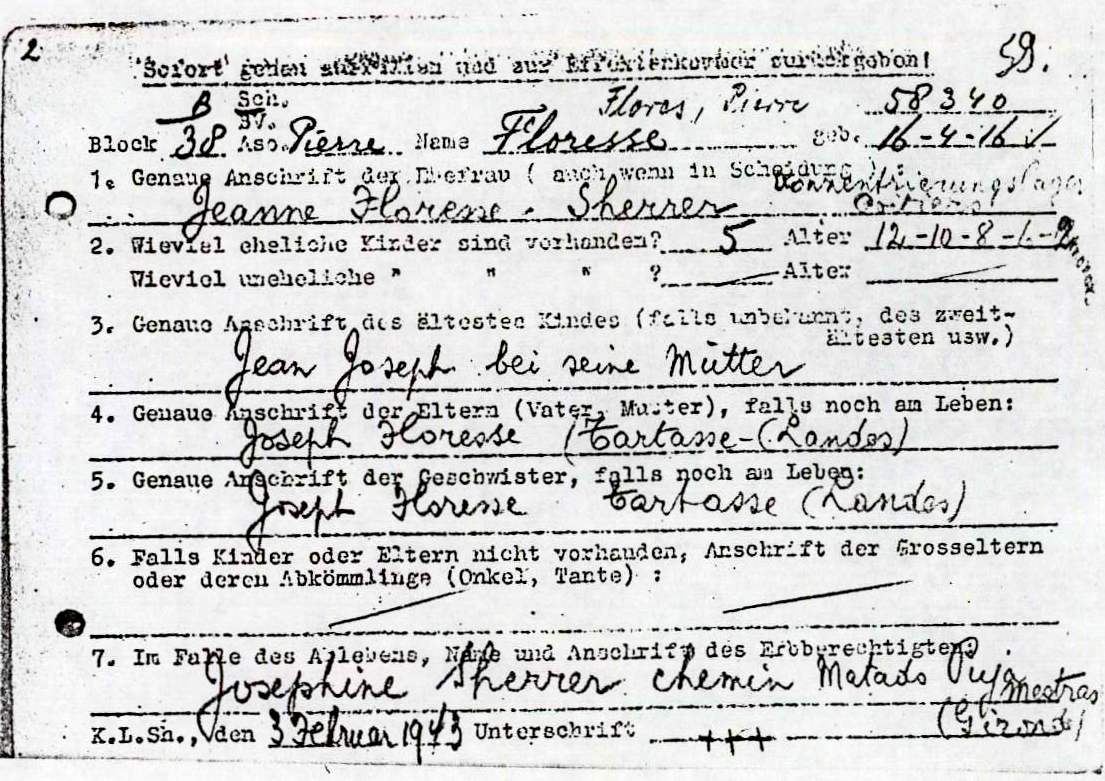 2
"Sofort" genau ausfüllen und zur Effektenkammer zurückgeben!
59.
B Sch. Flores, Pierre 58340
BV.
Block 38 Aso. Pierre Name Floresse geb. 16-4-16
1. Genaue Anschrift der Ehefrau ( auch wenn in Scheidung ) : Konzentrierungslager
Jeanne Floresse - Sherrer
2. Wieviel eheliche Kinder sind vorhanden? 5 Alter 12-10-8-
Wieviel uneheliche " " " ? Alter
3. Genaue Anschrift des ältesten Kindes (falls unbekannt, des zweit-
ältesten usw.)
Jean Joseph bei seine Mütter
4. Genaue Anschrift der Eltern (Vater, Mutter), falls noch am Leben:
Joseph Floresse (Tartasse-(Landes)
5. Genaue Anschrift der Geschwister, falls noch am Leben:
Joseph Floresse Tartasse (Landes)
6. Falls Kinder oder Eltern nicht vorhanden, Anschrift der Grosseltern
oder deren Abkömmlinge (Onkel, Tante) :
7. Im Falle des Ablebens, Name und Anschrift des Erbberechtigten:
Josephine Sherrer chemin Matado Puja
Mestras
(Gironde)
K.L.Sh., den 3 Februar 1943 Unterschrift +++